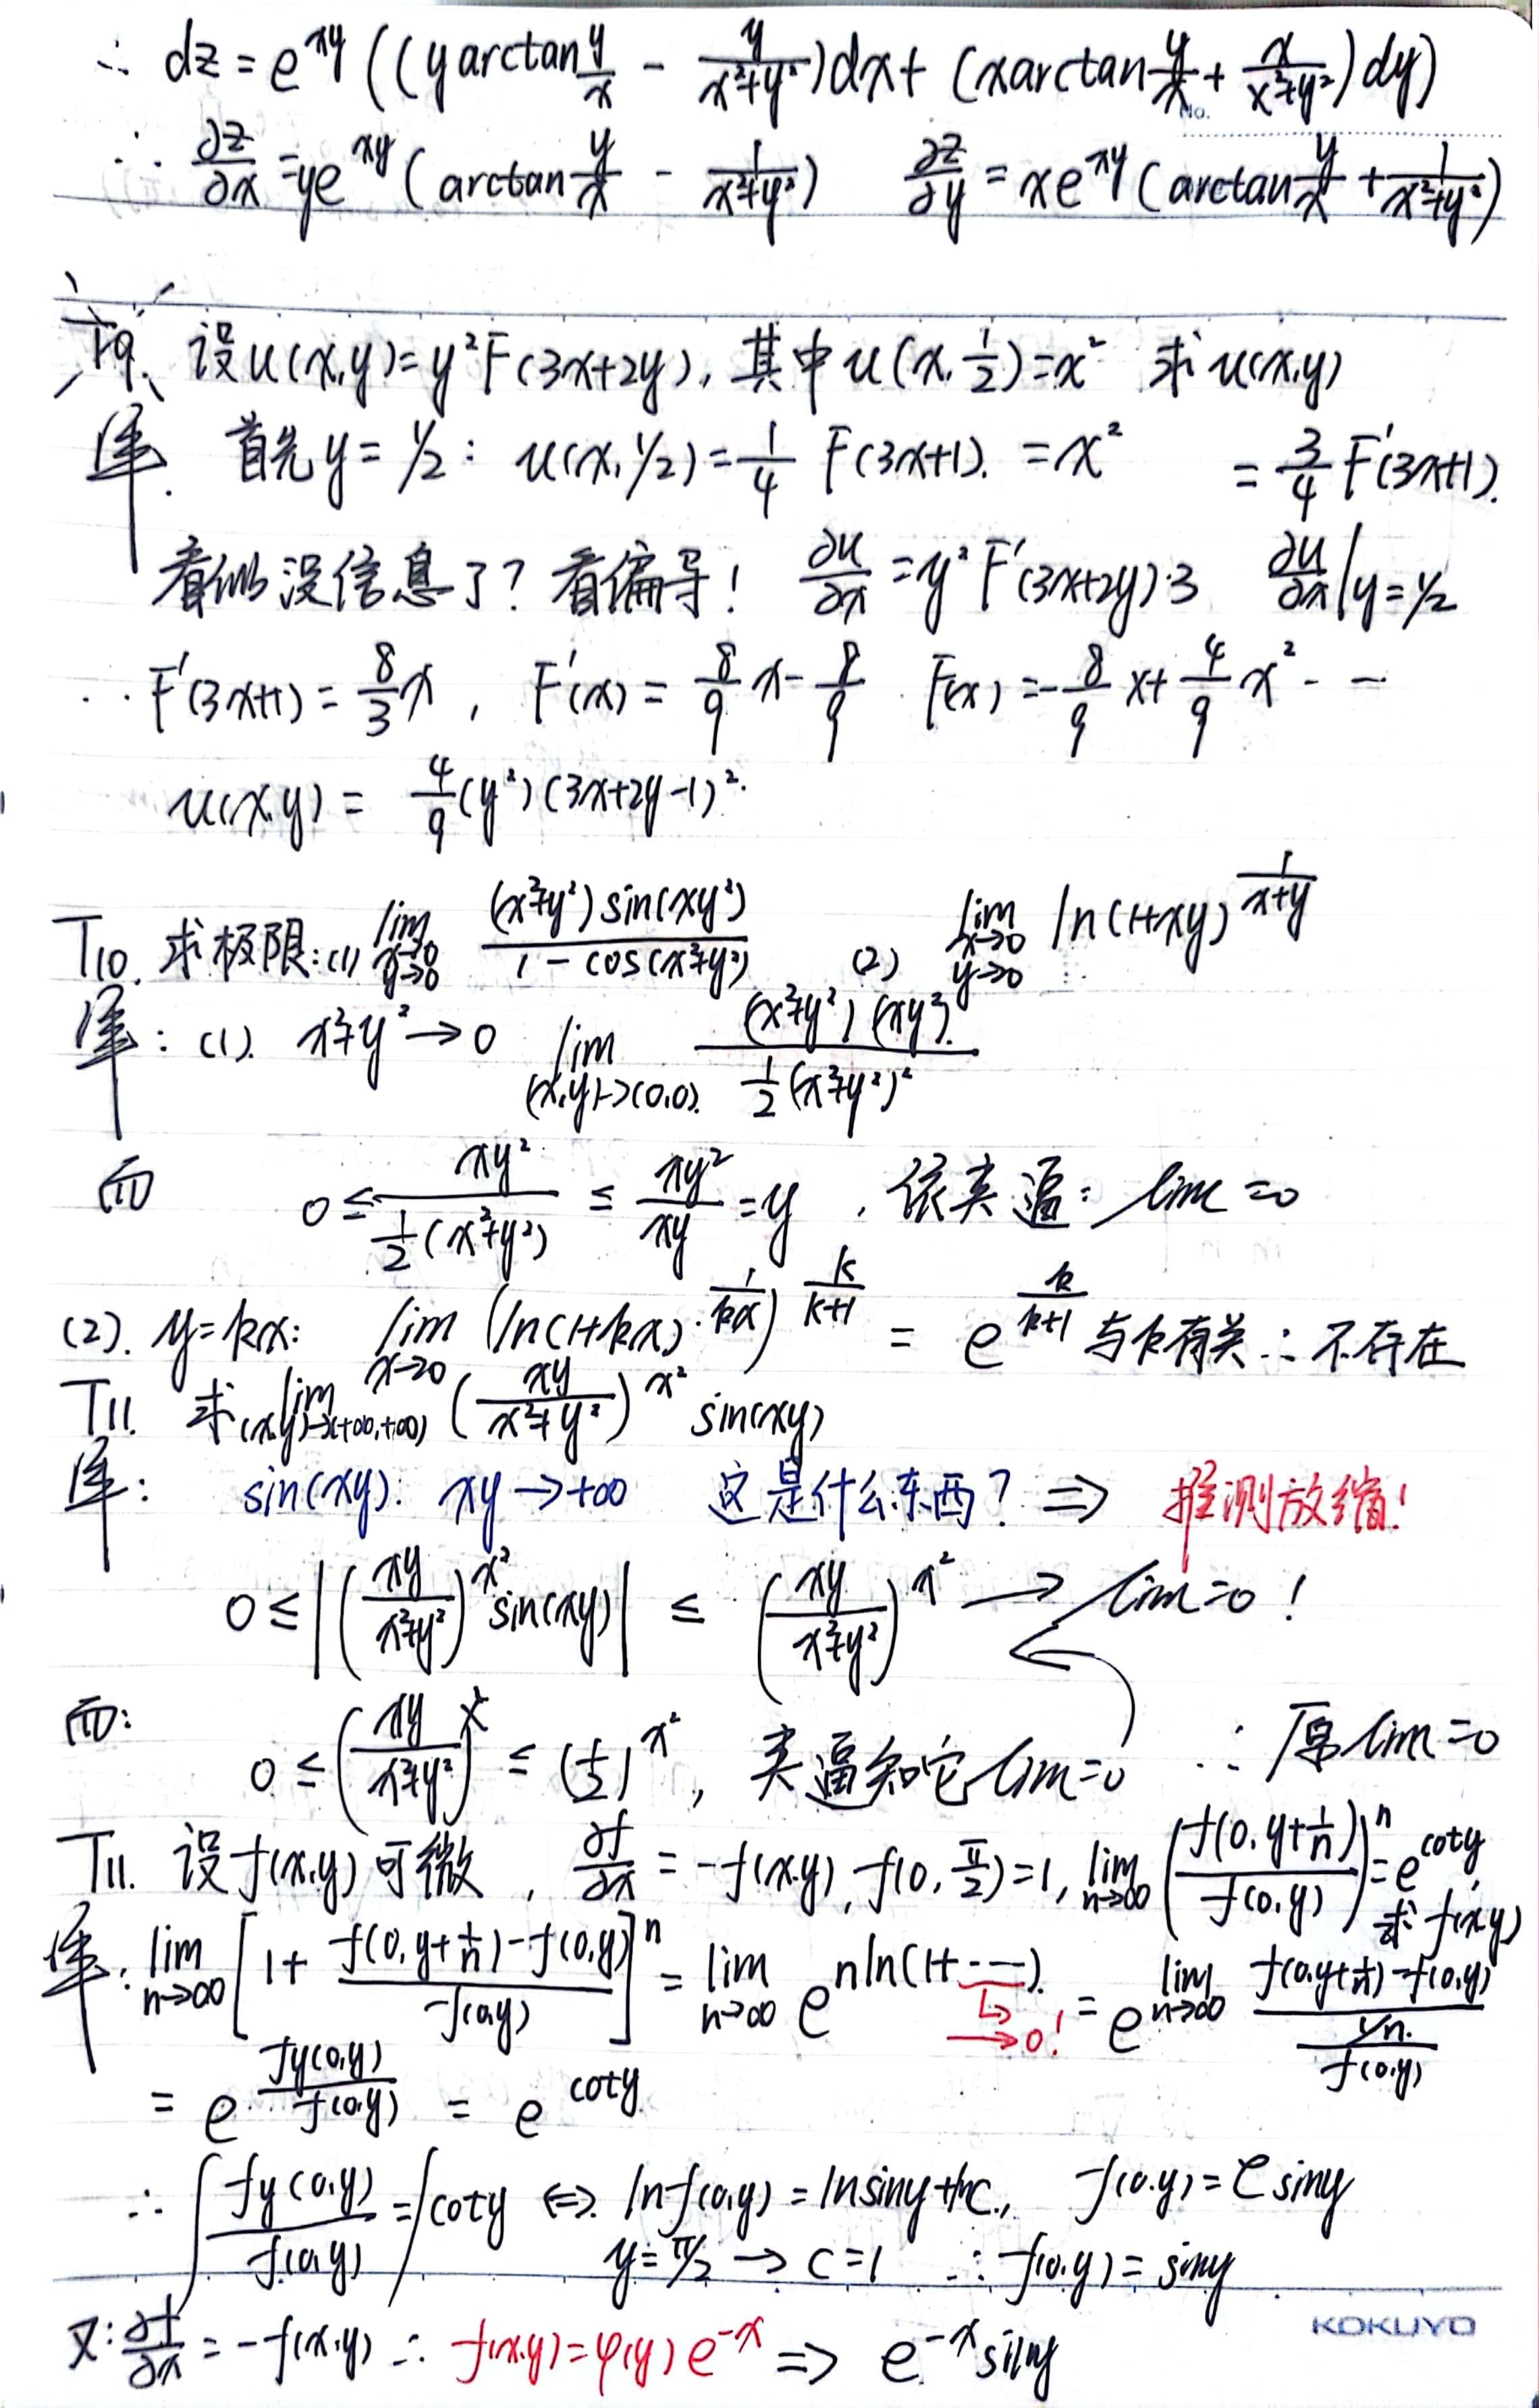 ∴ dz = e^{xy} ((y arctan y/x - y/(x²+y²)) dx + (x arctan y/x + x/(x²+y²)) dy)
No.
∴ ∂z/∂x = ye^{xy} (arctan y/x - 1/(x²+y²)) ∂z/∂y = xe^{xy} (arctan y/x + 1/(x²+y²))
T9. 设u(x,y)=y²F(3x+2y), 其中u(x,1/2)=x² 求u(x,y)
解. 首先y=1/2: u(x,1/2)=1/4 F(3x+1). =x² = 3/4 F'(3x+1).
看似没信息了?看偏导! ∂u/∂x = y²F'(3x+2y)·3 ∂u/∂x|y=1/2
∴ F'(3x+1) = 8/3 x, F'(x) = 8/9 x - 8/9 F(x) = -8/9 x + 4/9 x² - -
u(x,y) = 4/9 (y²)(3x+2y-1)².
T10. 求极限:(1) lim x→0 y→0 (x²+y²)sin(xy²)/(1-cos(x²+y²)) (2) lim x→0 y→0 ln(1+xy)^{1/(x+y)}
解: (1). x²+y²→0 lim (x,y)→(0,0). (x²+y²)(xy²)/(1/2(x²+y²)²)
而 0 ≤ xy²/(1/2(x²+y²)) ≤ xy²/xy = y, 依夹逼: lim=0
(2). y=kx: lim x→0 (ln(1+kx)·^{1/kx})^{k/(k+1)} = e^{k/(k+1)} 与k有关∴不存在
T11. 求 lim (x,y)→(+∞,+∞) (xy/(x²+y²))^{x²} sin(xy)
解: sin(xy): xy→+∞ 这是什么东西? ⇒ 推测放缩!
0 ≤ |(xy/(x²+y²))^{x²} sin(xy)| ≤ (xy/(x²+y²))^{x²} → lim=0!
而: 0 ≤ (xy/(x²+y²))^{x²} ≤ (1/2)^{x²}, 夹逼知它lim=0 ∴原lim=0
T11. 设f(x,y)可微, ∂f/∂x = -f(x,y), f(0,π/2)=1, lim n→∞ (f(0,y+1/n)/f(0,y))^n = e^{coty}, 求f(x,y)
解: lim n→∞ [1 + (f(0,y+1/n)-f(0,y))/f(0,y)]^n = lim n→∞ e^{n ln(1+---)} ↳→0! = e^{lim n→∞ (f(0,y+1/n)-f(0,y))/(1/n)/f(0,y)}
= e^{fy(0,y)/f(0,y)} = e^{coty}
∴ ∫ fy(0,y)/f(0,y) = ∫ coty ⇔ ln f(0,y) = ln siny + lnC., f(0,y) = C siny
y=π/2 → C=1 ∴ f(0,y) = siny
又: ∂f/∂x = -f(x,y) ∴ f(x,y)=φ(y)e^{-x} ⇒ e^{-x} siny
KOKUYO